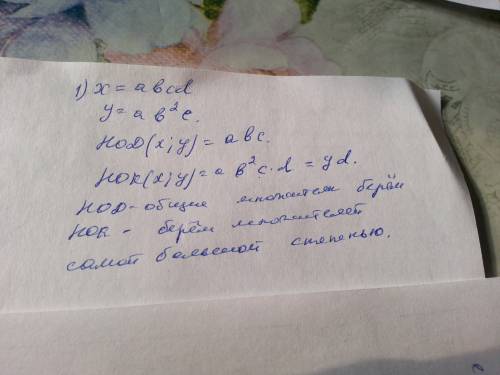 1) x = abcd
y = ab²c.
НОД(x;y) = abc.
НОК(x;y) = a b²c·d = yd.
НОД - общие множители берём
НОК - берём множителей
самой большой степенью.